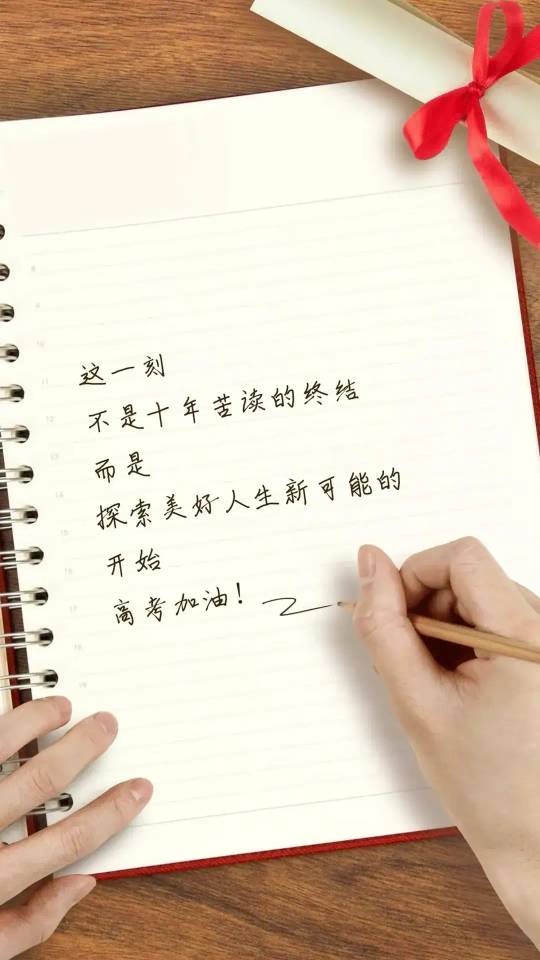 这一刻
不是十年苦读的终结
而是
探索美好人生新可能的
开始
高考加油!